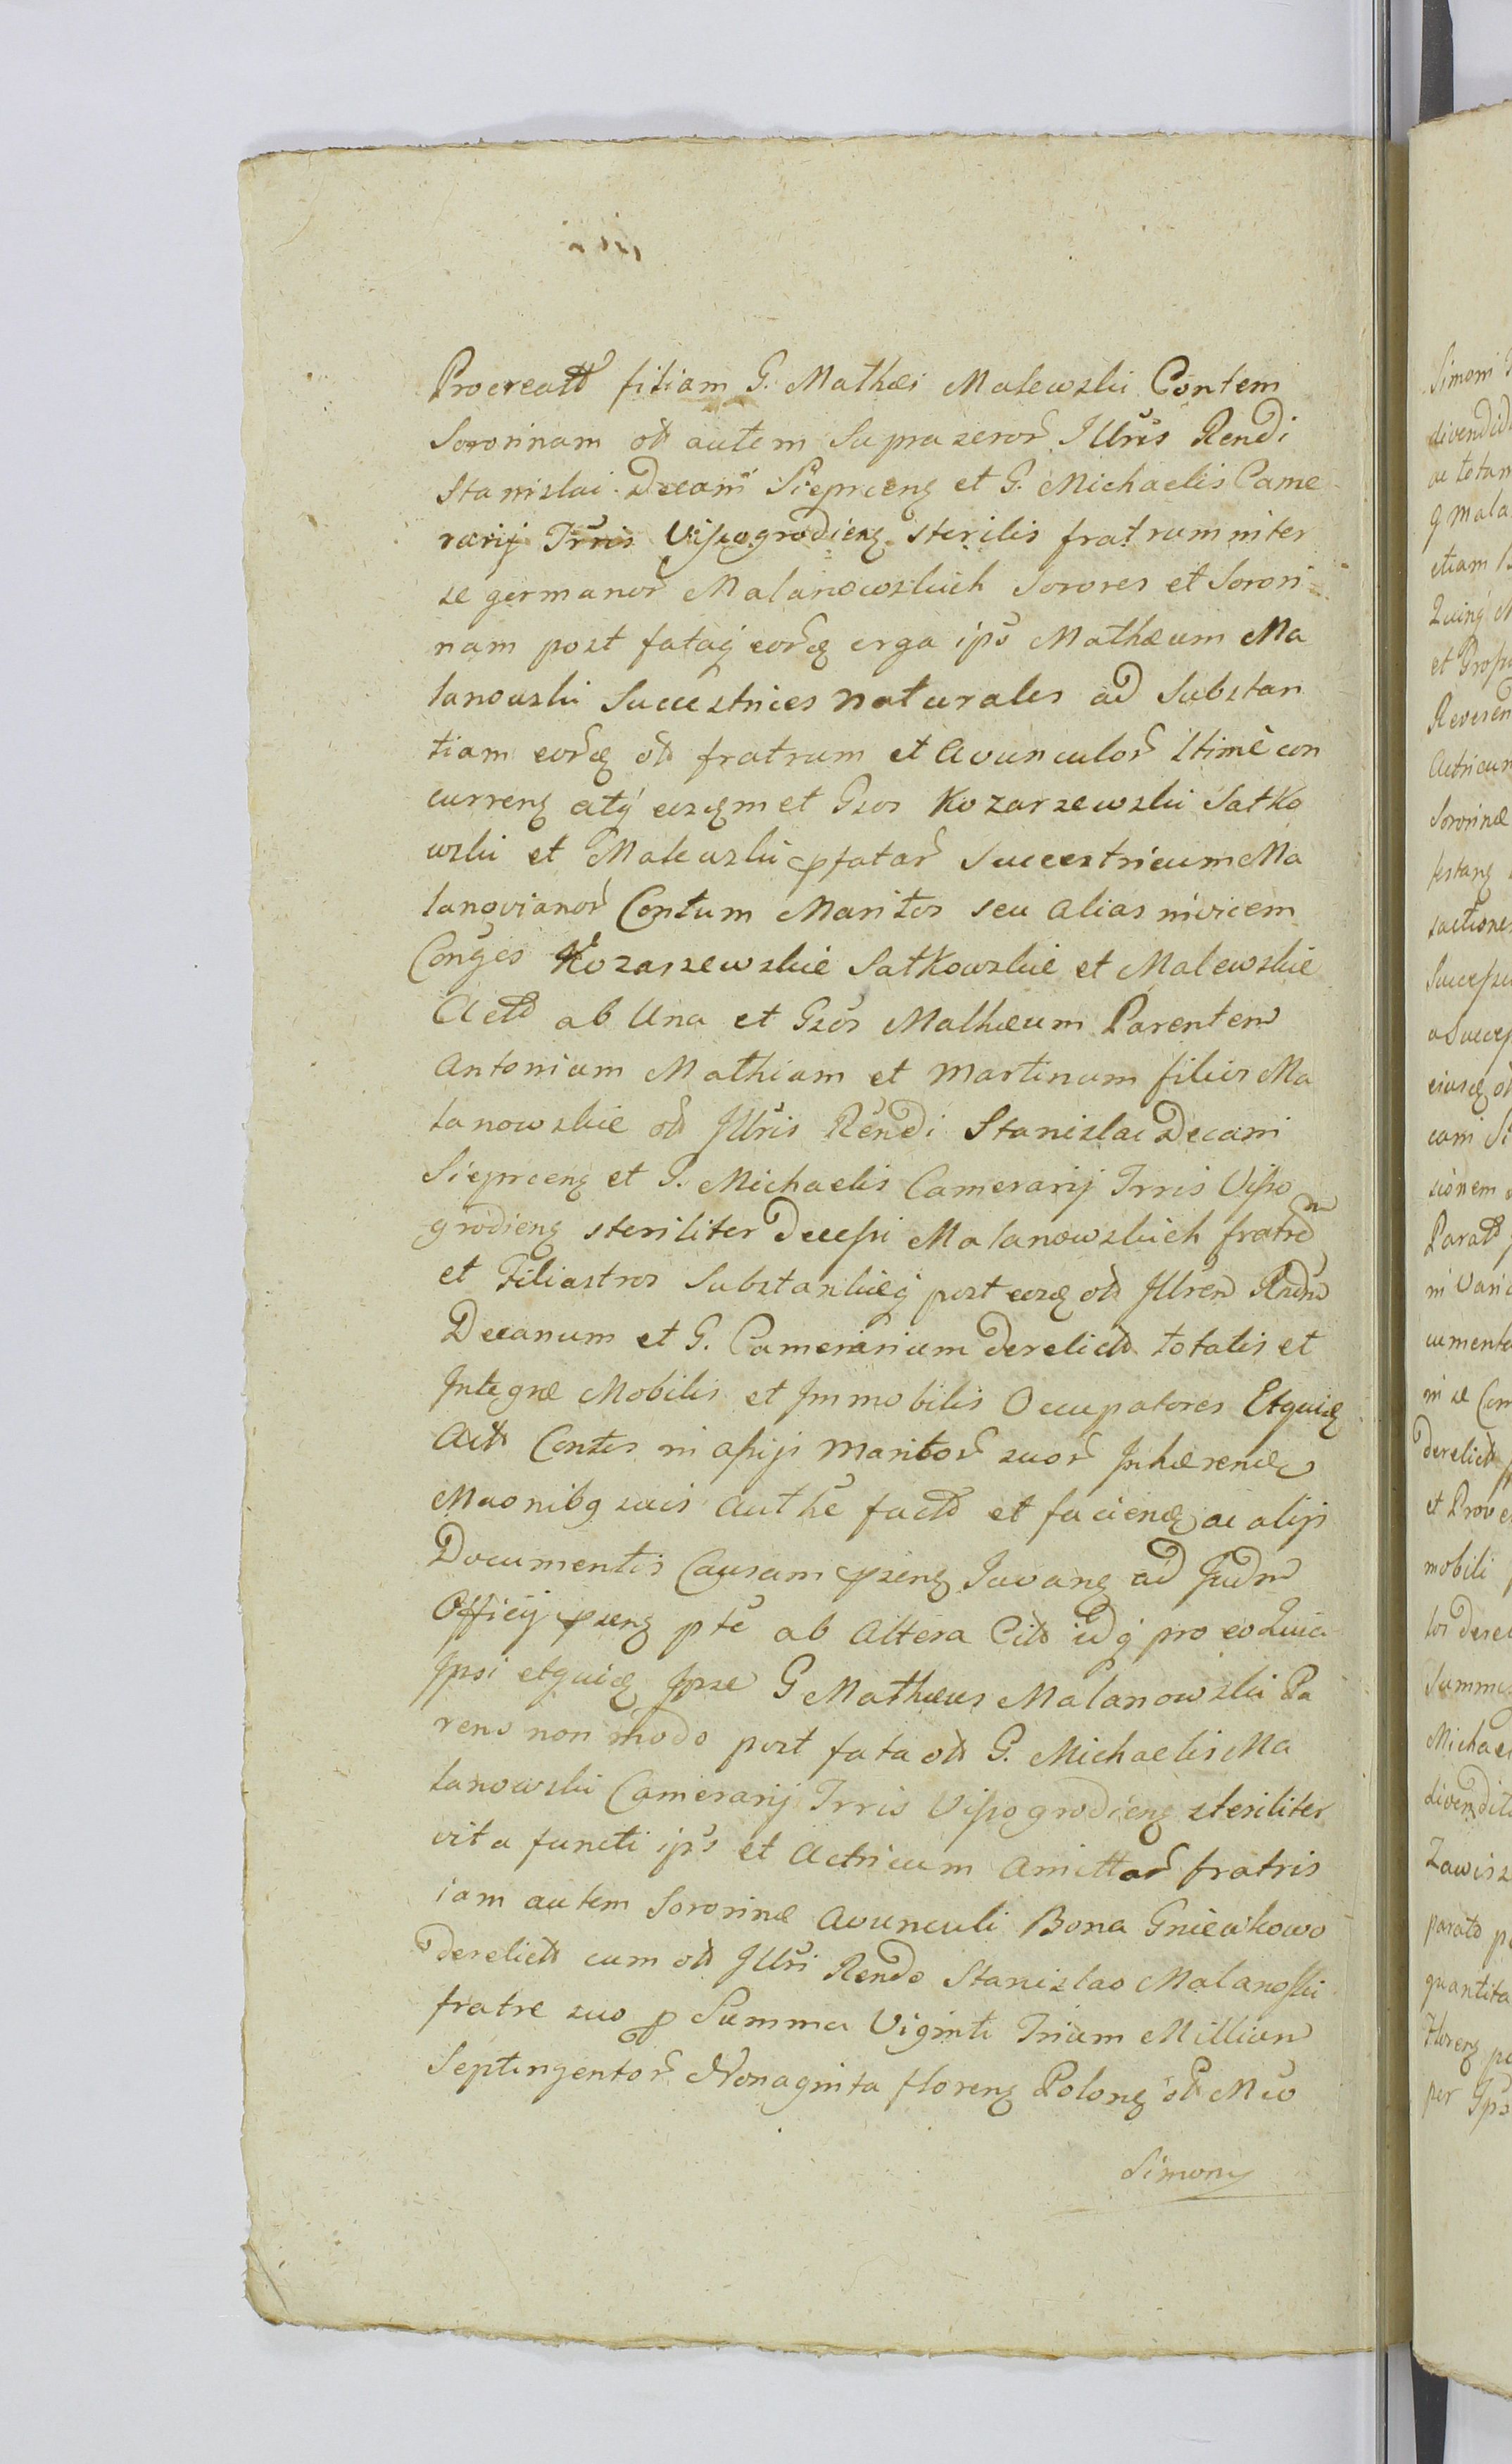 Procreatt filiam G. Mathæi Malewski Contem
Sororinam ol autem supra seror Illris Rendi
Stanislai Decani Sieprcens et G. Michaelis Came
rarij Trris Vissogrodiens sterilis fratrum inter
se germanor Malanowskich Sorores et Sorori
nam post fataq eorde erga ips Mathæum Ma
lanowski Succestrices naturales ad Substan
tiam eorde ol fratrum et Avunculor ltime con
currens atq eosdemet Gsos Kozarzewski Satko
wski et Malewski pfatar Succestricum Ma
lanovianor Contum Maritos seu alias invicem
Conges Kozarzewskie Satkowskie et Malewskie
Act ab Una et Gsos Mathæum Parentem
Antonium Mathiam et Martinum filios Ma
lanowskie ol Illris Rendi Stanislai Decani
Sieprcens et G. Michaelis Camerarij Trris Visso
grodiens steriliter Decessi Malanowskich fratrem
et Filiastros Substantiæq post eosde ol Illrem Rndum
Decanum et G. Camerarium derelict totalis et
Integræ Mobilis et Immobilis Occupatores Etquide
Act Contes in assijs Maritor suor Inhærende
Maonibq suis Authe fact et faciend ac alijs
Documentis Causam psens Iuvans ad Iudm
Officij psens pte ab Altera Cit idq pro eo Quia
Ipsi etquide Ipse G Mathæus Malanowski Pa
rens non modo post fata ol G. Michaelis Ma
lanowski Camerarij Trris Vissogrodiens steriliter
vita functi ips et Actricum Amittar fratris
iam autem Sororinæ Avunculi Bona Gniewkowo
derelict cum ol Illri Rendo Stanislao Malanoski
fratre suo p Summa Viginti Trium Millium
Septingentor Nonaginta florens Polons ol M
Simony